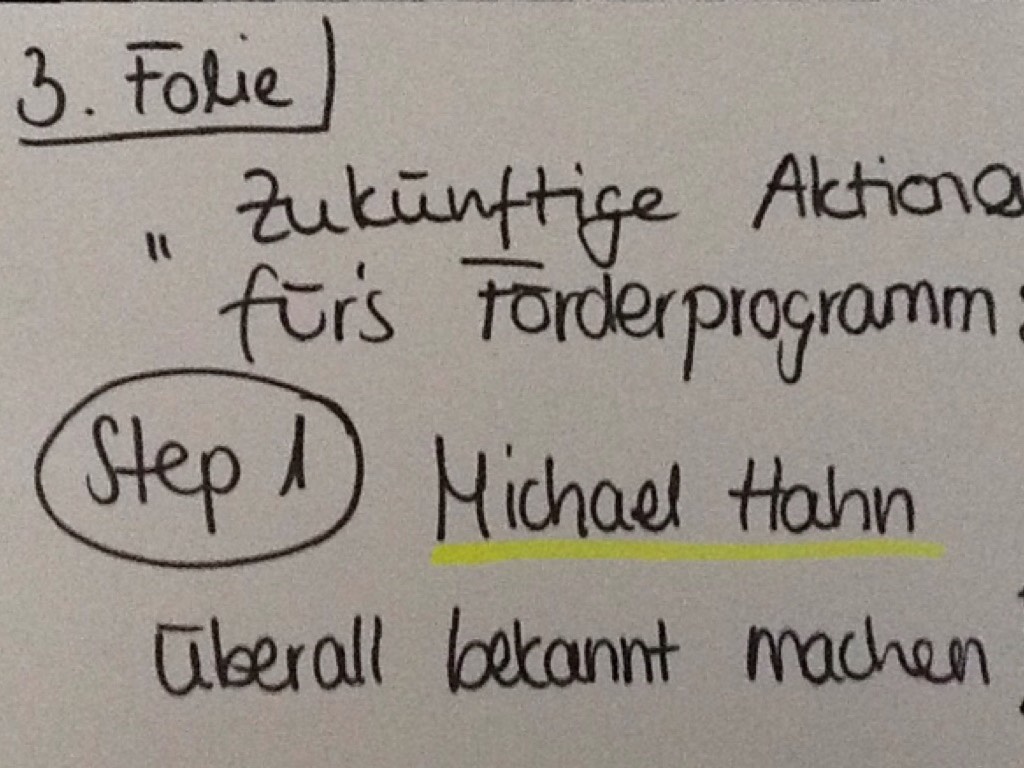 3. Folie
" Zukünftige Aktione
für's Förderprogramm:
Step 1 Michael Hahn
überall bekannt machen